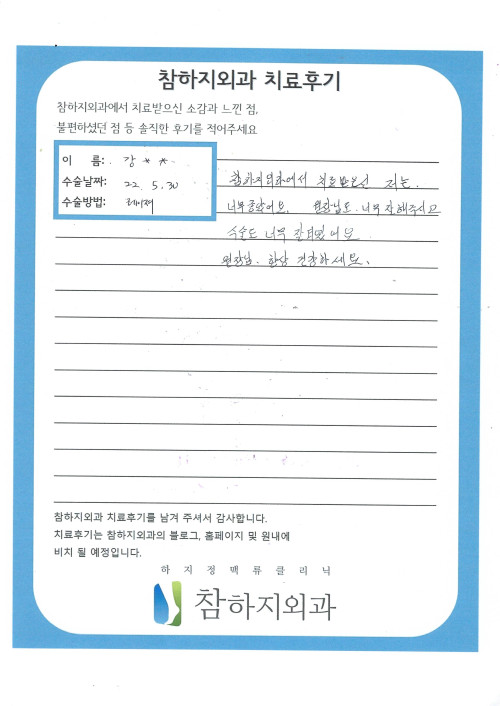 참하지외과 치료후기
참하지외과에서 치료받으신 소감과 느낀 점,
불편하셨던 점 등 솔직한 후기를 적어주세요
이 름: 강 * *
수술날짜: 22. 5. 30
수술방법: 레이저
참하지외과에서 치료받으신 저는.
너무좋았어요. 원장님도. 너무 잘해주시고
수술도 너무 잘되었어요
원장님. 항상 건강하세요.
참하지외과 치료후기를 남겨 주셔서 감사합니다.
치료후기는 참하지외과의 블로그, 홈페이지 및 원내에
비치 될 예정입니다.
하지정맥류클리닉
참하지외과